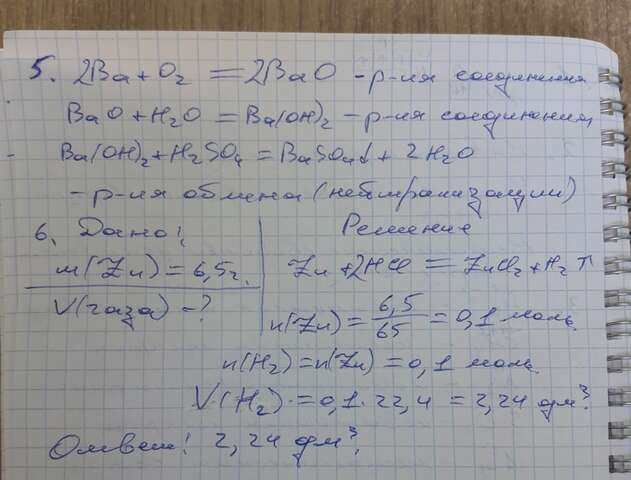 5. 2Ba + O₂ = 2BaO - р-ия соединения
BaO + H₂O = Ba(OH)₂ - р-ия соединения
Ba(OH)₂ + H₂SO₄ = BaSO₄↓ + 2H₂O
- р-ия обмена (нейтрализации)
6. Дано:
m(Zn) = 6,5г.
V(газа) - ?
Решение
Zn + 2HCl = ZnCl₂ + H₂↑
n(Zn) = 6,5/65 = 0,1 моль.
n(H₂) = n(Zn) = 0,1 моль.
V(H₂) = 0,1 · 22,4 = 2,24 дм³.
Ответ: 2,24 дм³.